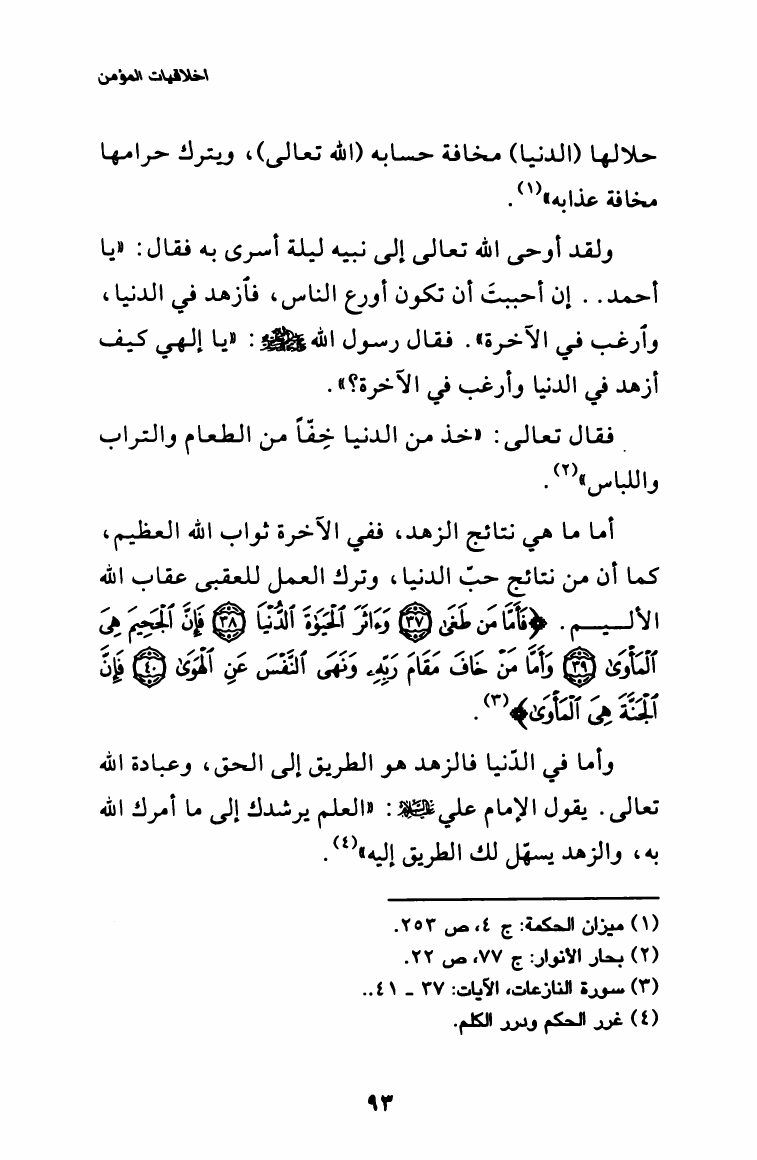 اخلاقيات المؤمن
حلالها (الدنيا) مخافة حسابه (الله تعالى)، ويترك حرامها
مخافة عذابه»(١).
ولقد أوحى الله تعالى إلى نبيه ليلة أسرى به فقال: «يا
أحمد.. إن أحببتَ أن تكون أورع الناس، فأزهد في الدنيا،
وأرغب في الآخرة». فقال رسول الله ﷺ: «يا إلهي كيف
أزهد في الدنيا وأرغب في الآخرة؟».
فقال تعالى: «خذ من الدنيا خِفّاً من الطعام والتراب
واللباس»(٢).
أما ما هي نتائج الزهد، ففي الآخرة ثواب الله العظيم،
كما أن من نتائج حبّ الدنيا، وترك العمل للعقبى عقاب الله
الأليـــم. ﴿فَأَمَّا مَن طَغَىٰ ٣٧ وَءَاثَرَ ٱلْحَيَوٰةَ ٱلدُّنْيَا ٣٨ فَإِنَّ ٱلْجَحِيمَ هِىَ
ٱلْمَأْوَىٰ ٣٩ وَأَمَّا مَنْ خَافَ مَقَامَ رَبِّهِۦ وَنَهَى ٱلنَّفْسَ عَنِ ٱلْهَوَىٰ ٤٠ فَإِنَّ
ٱلْجَنَّةَ هِىَ ٱلْمَأْوَىٰ﴾(٣).
وأما في الدّنيا فالزهد هو الطريق إلى الحق، وعبادة الله
تعالى. يقول الإمام علي عليه السلام: «العلم يرشدك إلى ما أمرك الله
به، والزهد يسهّل لك الطريق إليه»(٤).
(١) ميزان الحكمة: ج ٤، ص ٢٥٣.
(٢) بحار الأنوار: ج ٧٧، ص ٢٢.
(٣) سورة النازعات، الآيات: ٣٧ - ٤١..
(٤) غرر الحكم ودرر الكلم.
٩٣